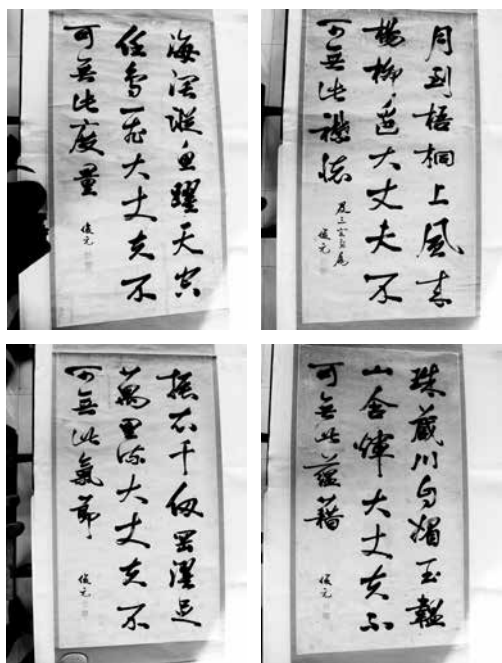 海闊縱魚躍天空
任鳥飛大丈夫不
可無此度量
俊元
月到梧桐上風來
楊柳邊大丈夫不
可無此襟懷
俊元
振衣千仞岡濯足
萬里流大丈夫不
可無此氣節
俊元
珠藏川自媚玉韞
山含煇大丈夫不
可無此蘊藉
俊元